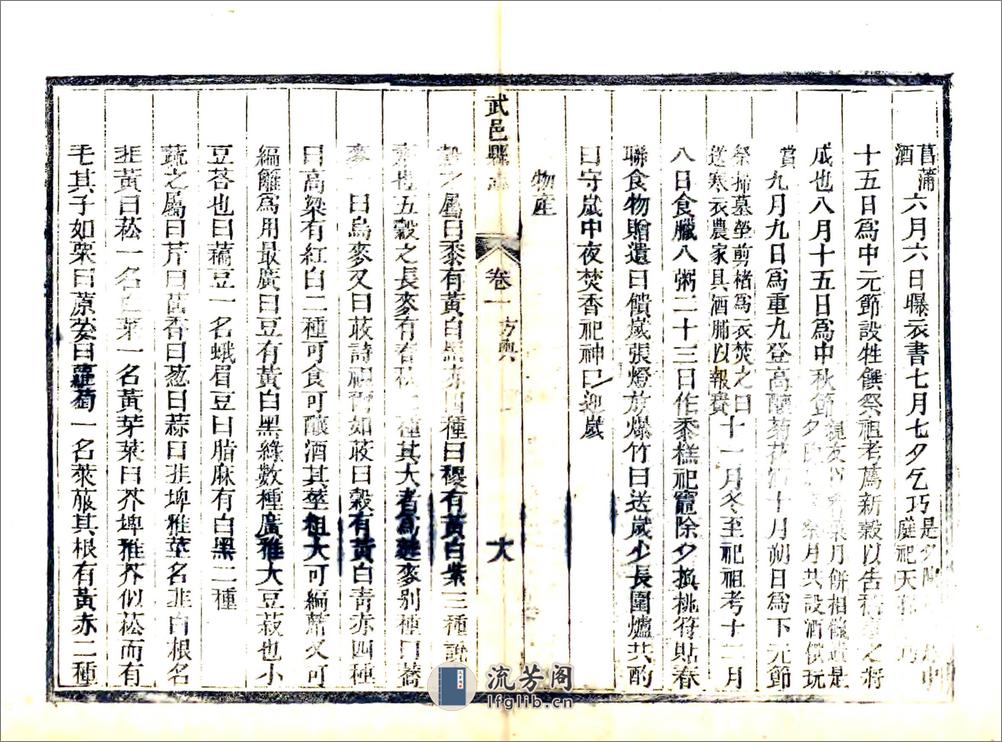 菖蒲酒六月六日曝衣書七月七夕乞巧是夕庭祀天
十五日爲中元節設牲饌祭祖考薦新穀以告之將
成也八月十五日爲中秋節月餅相饋遺是夕月共設酒偎玩
賞九月九日爲重九登高釀菊花十月朔日爲下元節
祭掃墓塋剪楮爲衣焚之曰送寒衣農家具酒脯以報賽十一月冬至祀祖考十二月
八日食臘八粥二十三日作黍糕祀竈除夕換桃符貼春
聯食物贈遺曰饋歲張燈放爆竹曰送歲少長圍爐共酌
曰守歲中夜焚香祀神曰迎歲
物産
武邑縣志 卷一 方輿 大
之屬曰黍有黃白黑赤四種曰稷有黃白紫三種說
禮五穀之長麥有春秋二種其大者爲麰麥別種曰蕎
麥曰烏麥又曰荍詩視爾如荍曰穀有黃白青赤四種
曰高粱有紅白二種可食可釀酒其莖粗大可編蓆又可
編籬爲用最廣曰豆有黃白黑綠數種廣雅大豆菽也小
豆荅也曰藊豆一名蛾眉豆曰脂麻有白黑二種
蔬之屬曰芹曰茴香曰葱曰蒜曰韭埤雅莖名韭白根名
韭黃曰菘一名白菜一名黃芽菜曰芥埤雅芥似菘而有
毛其子如粟曰蒝荽曰蘿蔔一名萊菔其根有黃赤二種
流芳阁
lfglib.cn